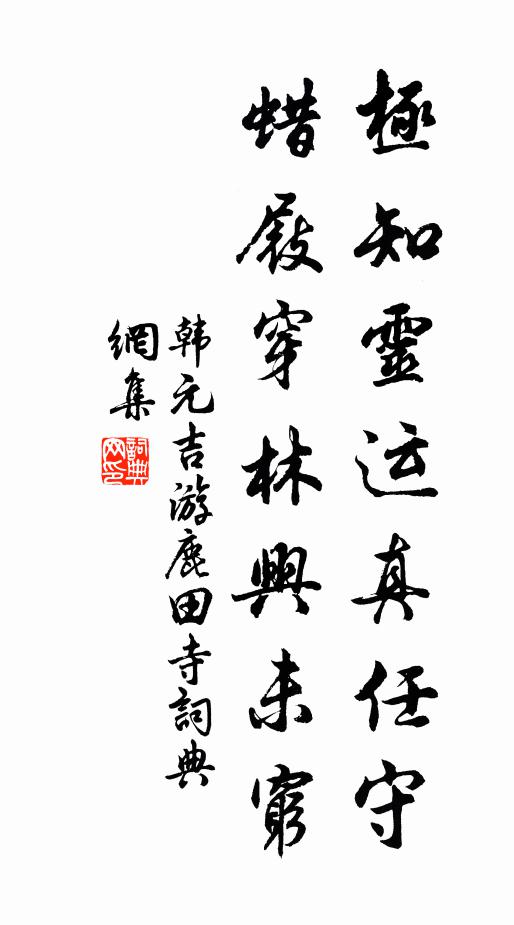 極知靈运真任守
蜡屐穿林興未窮
韩元吉游鹿田寺詞典
網集
詞典
网印